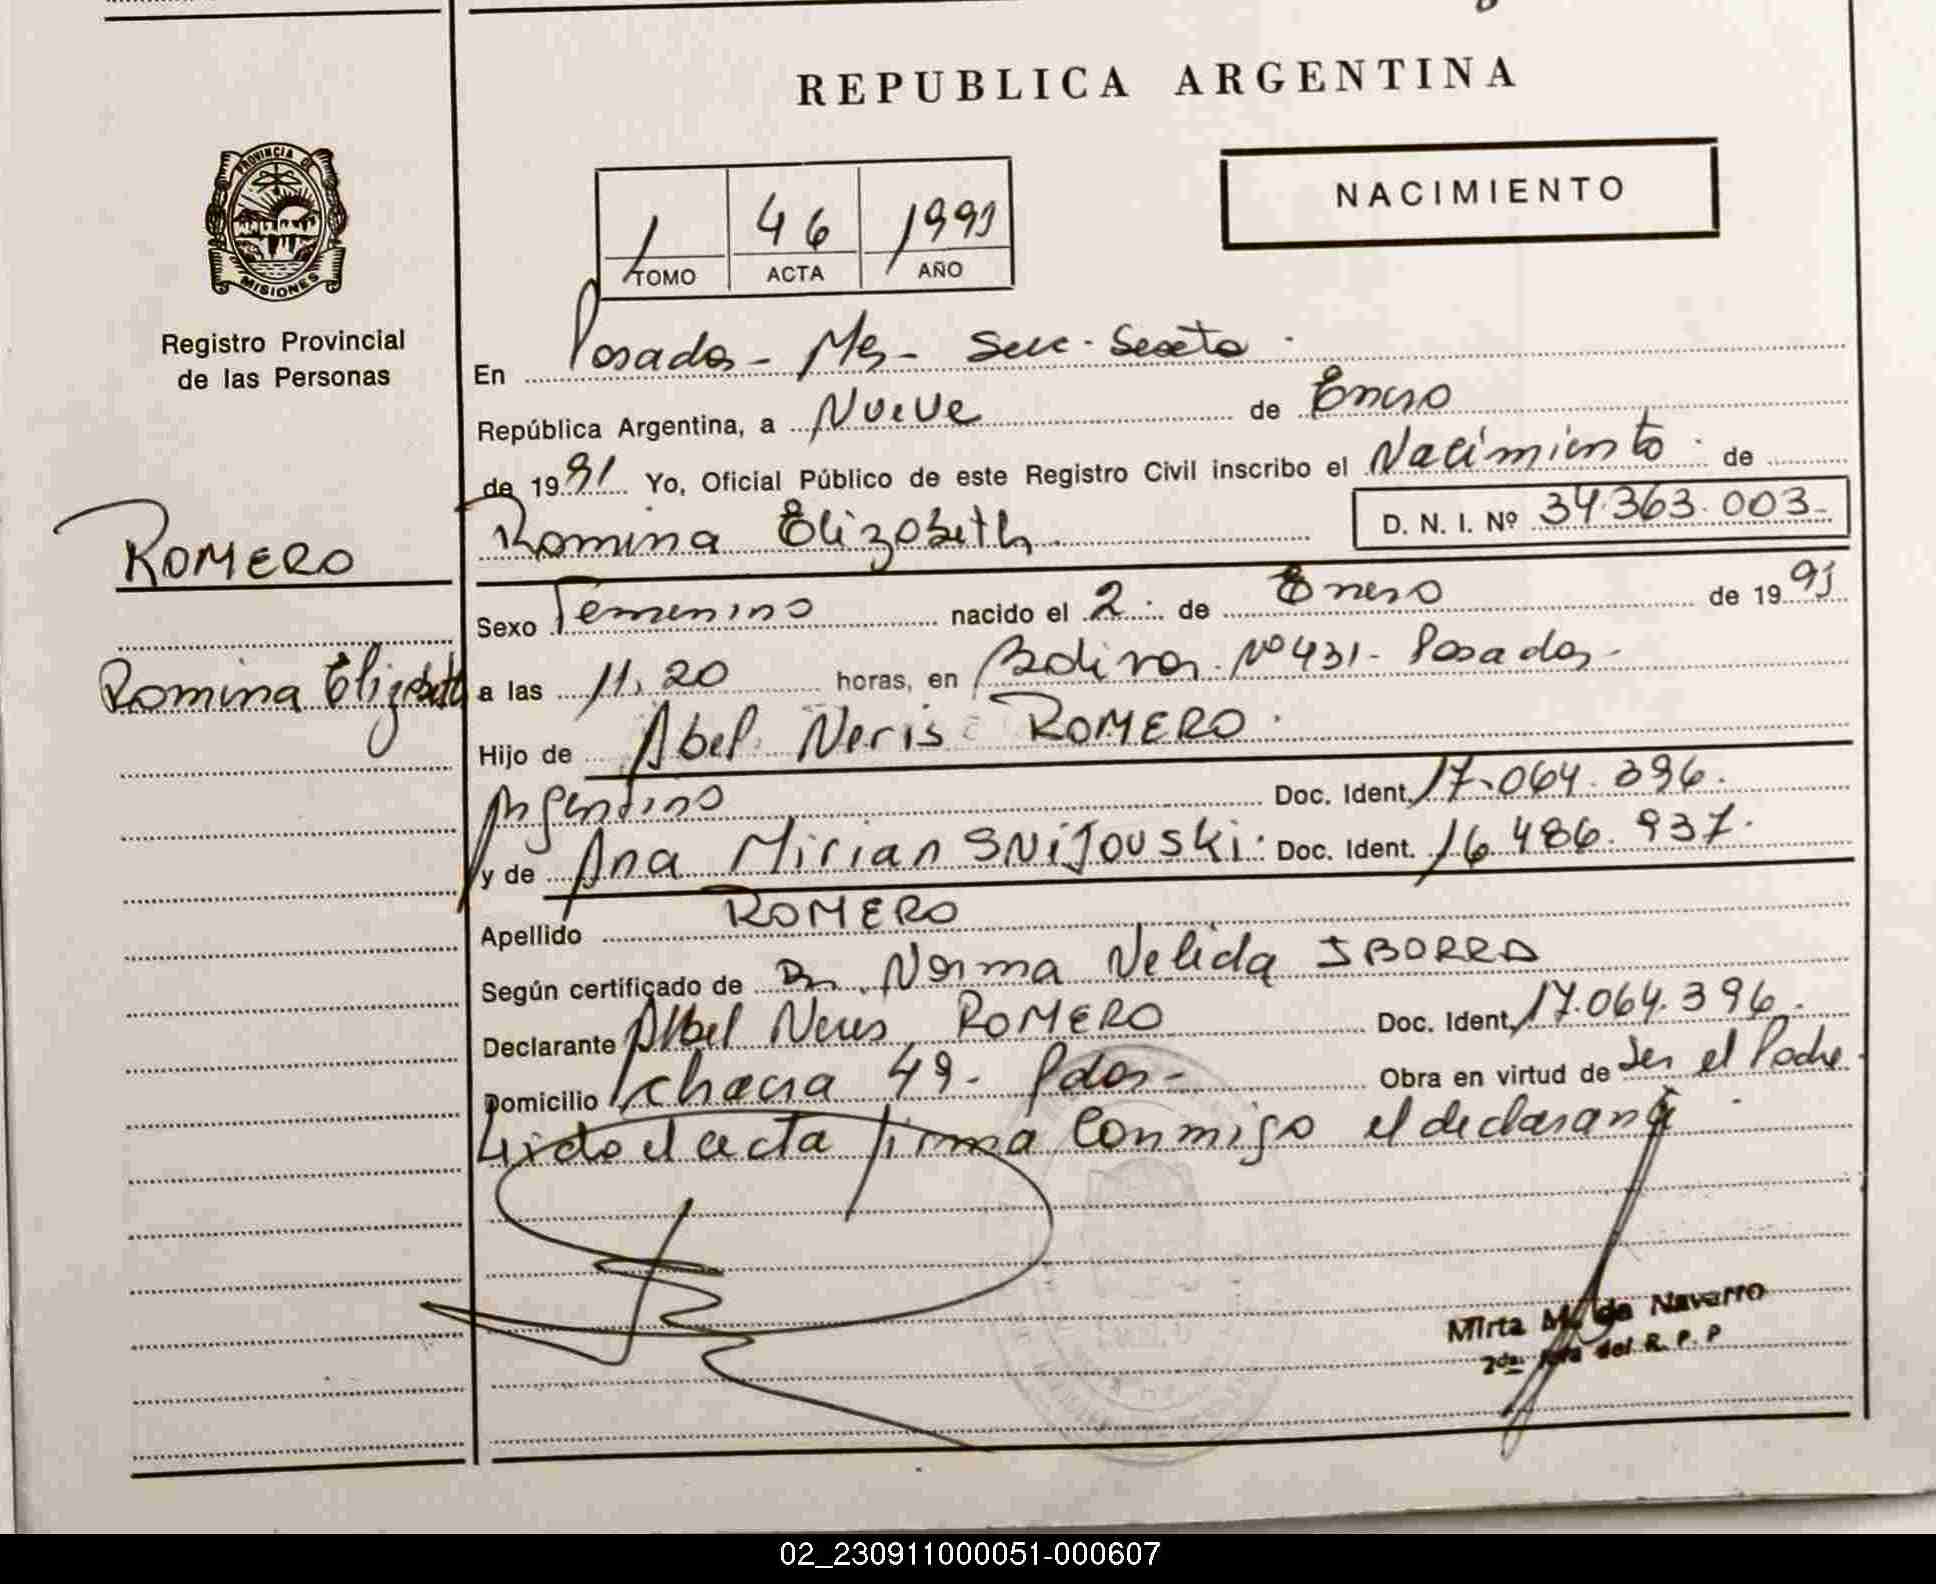 REPUBLICA ARGENTINA
PROVINCIA DE
MISIONES
Registro Provincial
de las Personas
1 46 1991
TOMO ACTA AÑO
NACIMIENTO
En Posadas - Ms - Secc. Sexta.
República Argentina, a Nueve de Enero
de 1991 Yo, Oficial Público de este Registro Civil inscribo el Nacimiento de
Romina Elizabeth D. N. I. Nº 34.363.003-
ROMERO
Romina Elizabeth
Sexo Femenino nacido el 2 de Enero de 1991
a las 11,20 horas, en Bolivar Nº 431- Posadas-
Hijo de Abel Neris ROMERO.
Argentino Doc. Ident. 17.064.396.
y de Ana Mirian SNiJOUSKi Doc. Ident. 16.486.937.
Apellido ROMERO
Según certificado de Dra. Norma Nelida IBORRA
Declarante Abel Neris ROMERO Doc. Ident. 17.064.396.
Domicilio chacra 49- Pdas- Obra en virtud de Ser el Padre.
Leida el acta firma conmigo el declarante
Mirta M. de Navarro
2da. Jefa del R. P. P
02_230911000051-000607